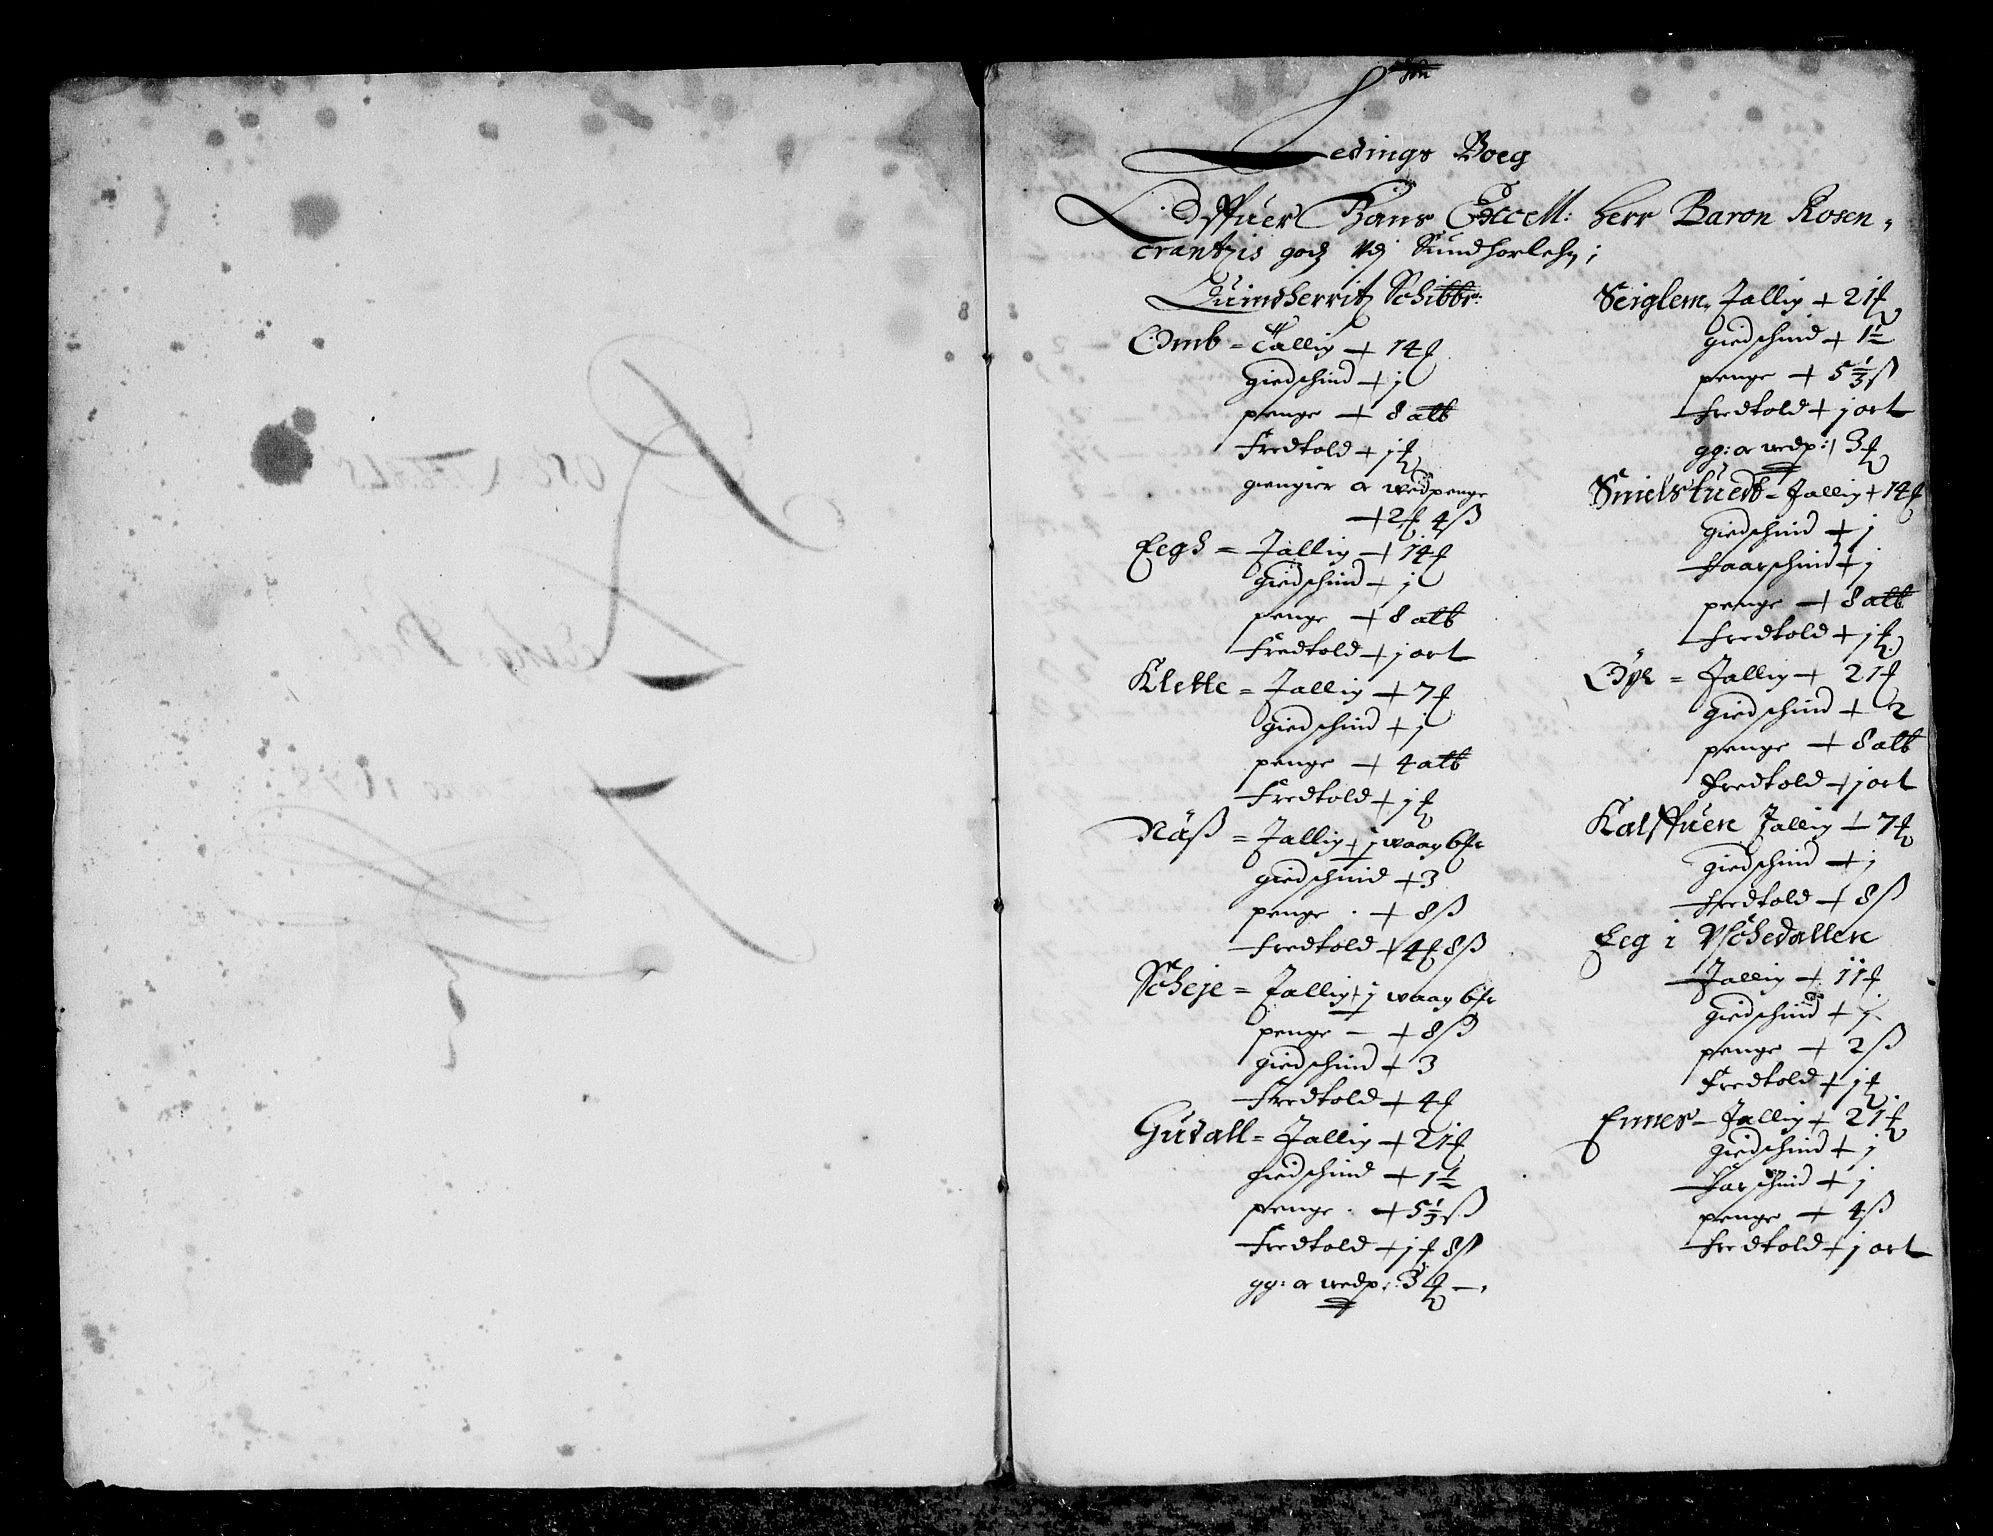 Ledings Boeg
Offuer Hans Excell: Herr Baron Rosen-
crantzis godz udj Sundhorlehn;
Quindherritz Schibbr:
Omb = Tallig + 14
giedschind + j
penge + 8 alb
Fredtold + j
giengier oc wedpenge
+ 2 4 ß
Eegh = Tallig + 14
giedschind + j
penge + 8 alb
Fredtold + j ort
Klette = Tallig + 7
giedschind + j
penge + 4 alb
Fredtold + j
Näß = Tallig + j waag 6
giedschind + 3
penge + 8 ß
Fredtold + 4 8 ß
Scheje = Tallig + j waag 6
penge + 8 ß
giedschind + 3
Fredtold + 4
Gudall = Tallig + 21
giedschind + 1½
penge + 5⅓ ß
Fredtold + j 8 ß
gg: oc wedp: 3
Seiglem Tallig + 21
giedschind + 1½
penge + 5⅓ ß
Fredtold + j ort
gg: oc wedp: 3
Smielstuedt = Tallig + 14
giedschind + j
Haarschind + j
penge + 8 alb
Fredtold + j
Öye = Tallig + 21
giedschind + 2
penge + 8 alb
Fredtold + j ort
Kalffuen Tallig + 7
giedschind + j
Fredtold + 8 ß
Eeg i
Tallig + 11
giedschind + j
penge + 2 ß
Fredtold + j
Ennes Tallig + 21
giedschind + j
Harschind + j
penge + 4 ß
Fredtold + j ort